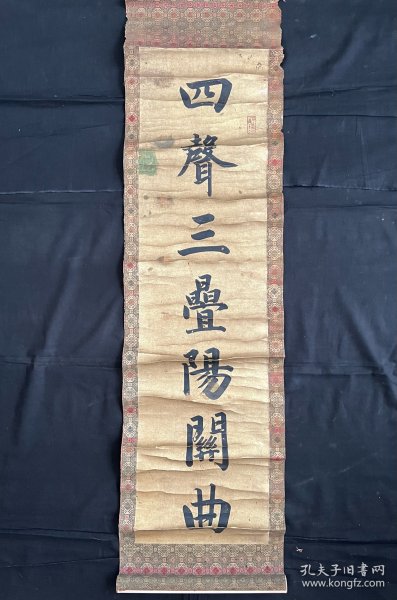 四聲三疊陽關曲
孔夫子旧书网
www.kongfz.com